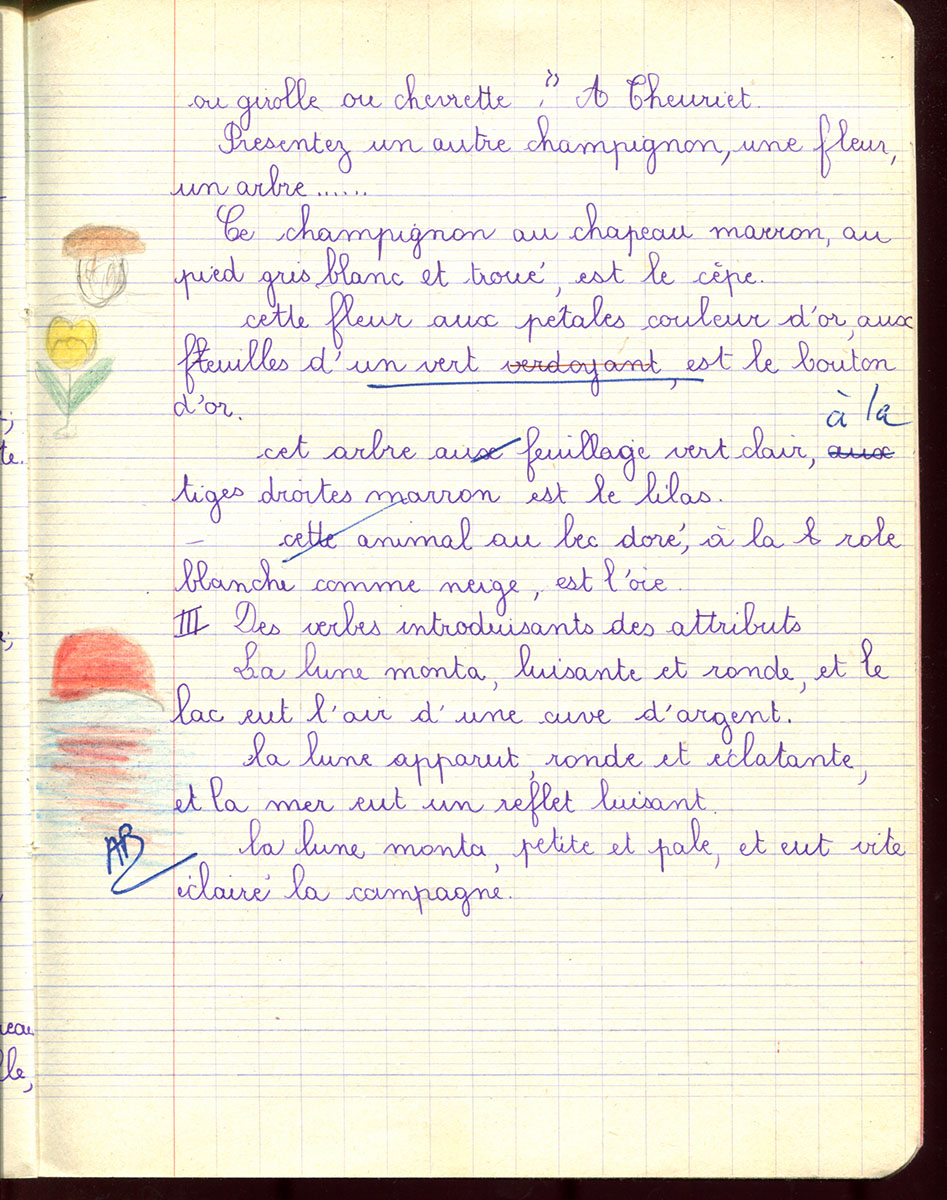 ou girolle ou chevrette ." A Theuriet.
Présentez un autre champignon, une fleur,
un arbre......
Ce champignon au chapeau marron, au
pied gris blanc et troué, est le cèpe.
cette fleur aux pétales couleur d'or, aux
feuilles d'un vert verdoyant, est le bouton
d'or.
à la
cet arbre aux feuillage vert clair, aux
tiges droites marron est le lilas.
– cette animal au bec doré, à la robe
blanche comme neige, est l'oie.
III Des verbes introduisants des attributs
La lune monta, luisante et ronde, et le
lac eut l'air d'une cuve d'argent.
la lune apparut, ronde et éclatante,
et la mer eut un reflet luisant.
AB
la lune monta, petite et pale, et eut vite
éclairé la campagne.